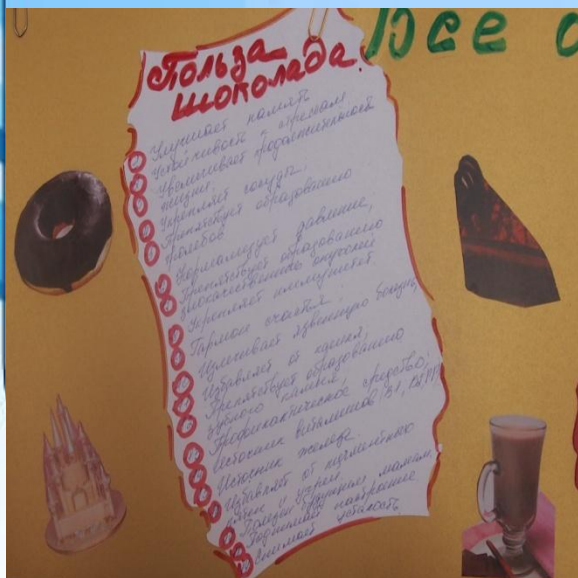 Все о
Польза
шоколада!
Улучшает память
Устойчивость к стрессам
Увеличивает продолжительность
жизни.
Укрепляет сосуды.
Препятствует образованию
тромбов
Нормализует давление,
Препятствует образованию
злокачественных опухолей
Укрепляет иммунитет.
Гормон счастья.
Излечивает язвенную болезнь,
Избавляет от кашля,
Препятствует образованию
зубного камня,
Профилактическое средство;
Источник витаминов (В1, В2, РР)
Источник железа
Избавляет от пигментных
пятен и угрей
Полезен будущим мамам,
Поднимает настроение
Снимает усталость.